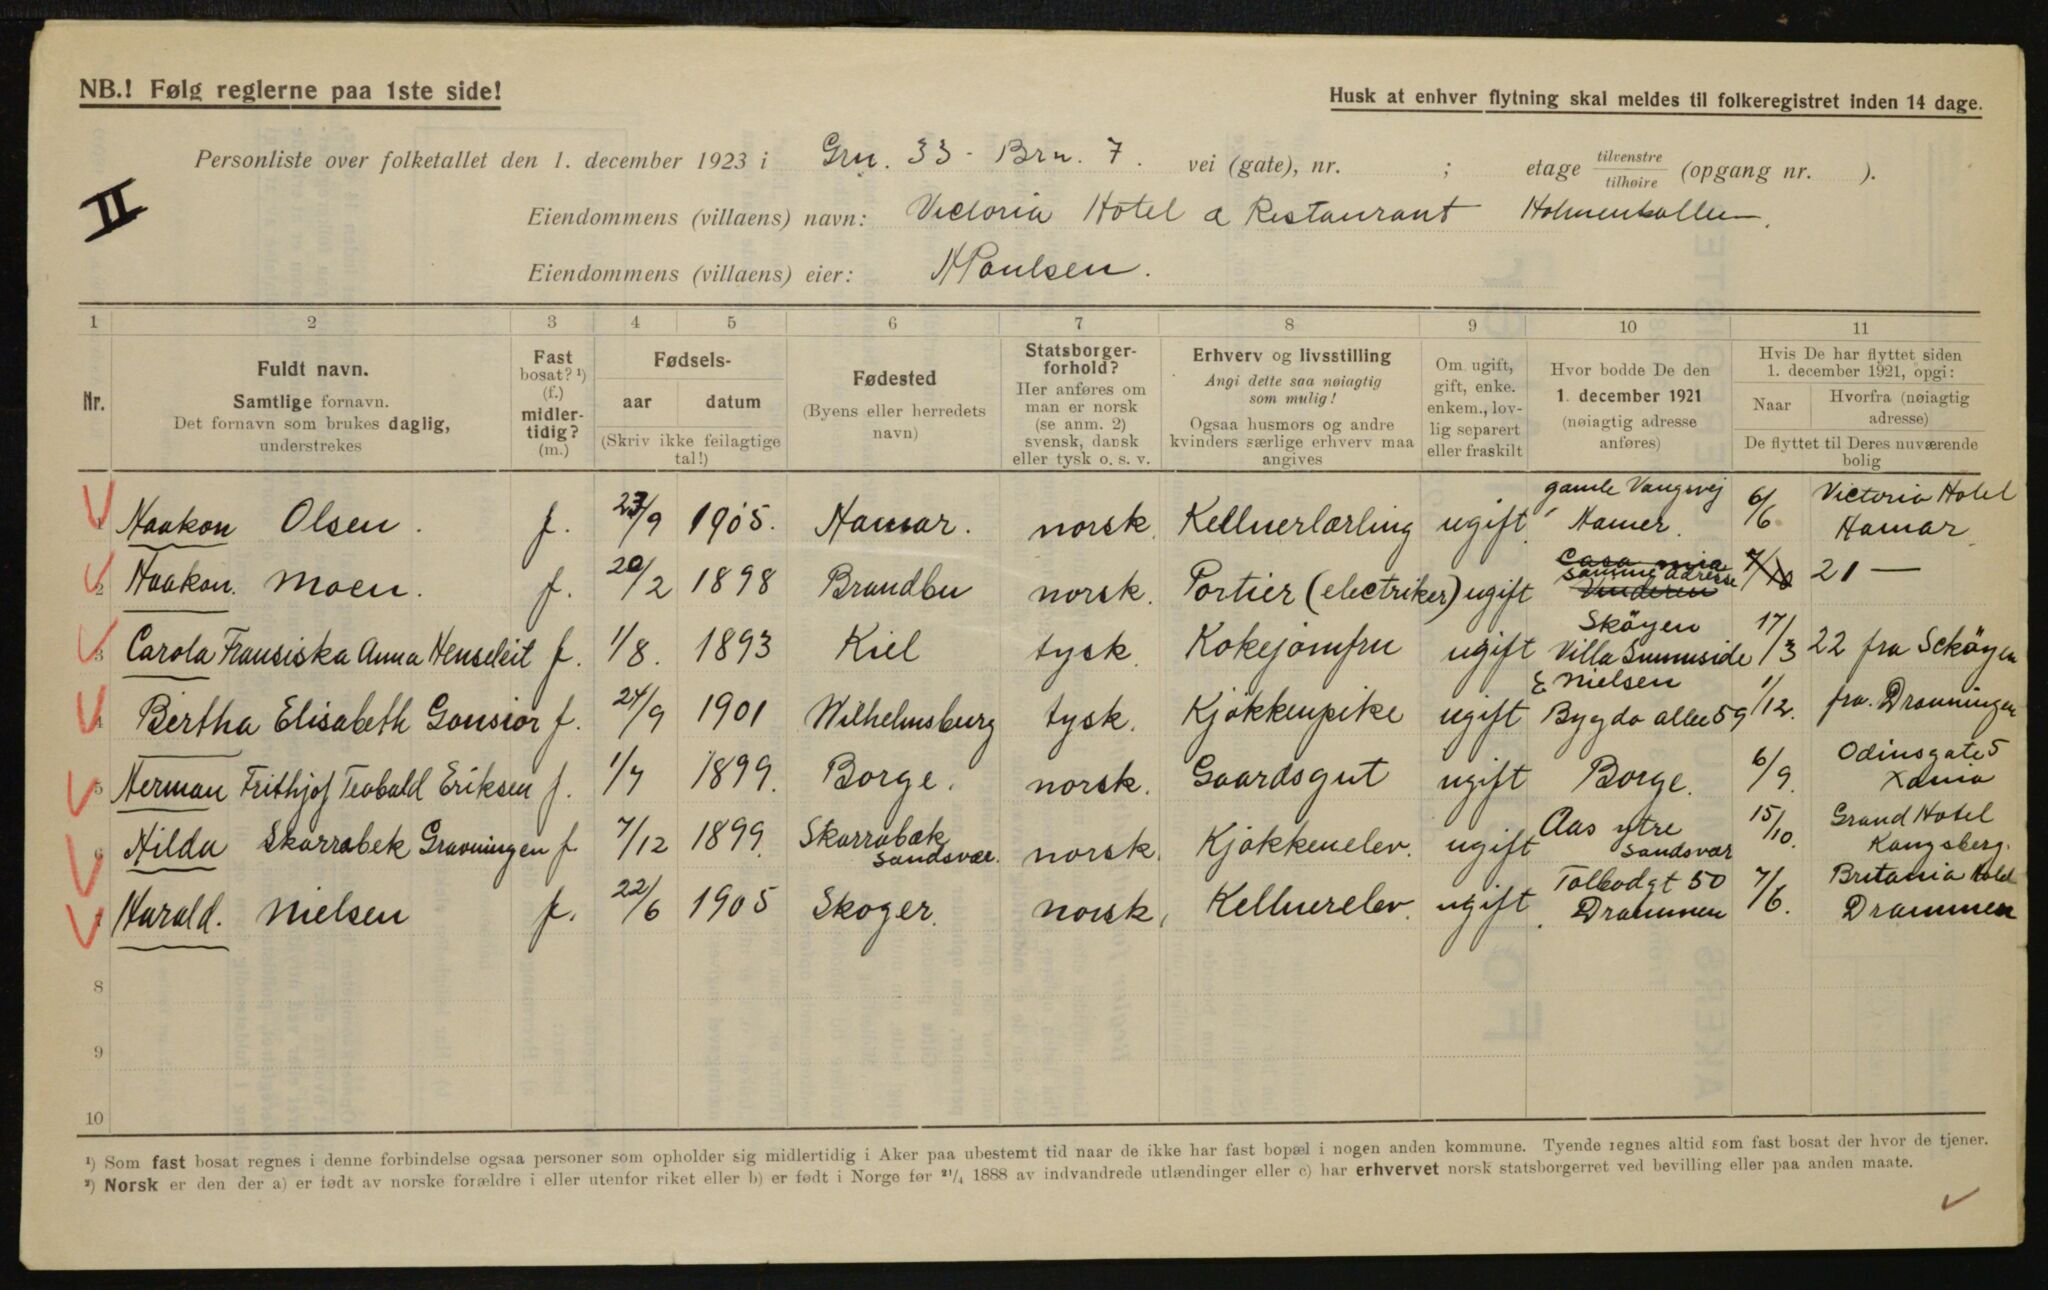 NB.! Følg reglerne paa 1ste side!
Husk at enhver flytning skal meldes til folkeregistret inden 14 dage.
Personliste over folketallet den 1. december 1923 i Grn. 33 - Brn. 7. vei (gate), nr. ; etage tilvenstre tilhøire (opgang nr. ).
II
Eiendommens (villaens) navn: Victoria Hotel & Restaurant Holmenkollen.
Eiendommens (villaens) eier: HPaulsen.
1 2 3 4 5 6 7 8 9 10 11
Nr.
Fuldt navn.
Samtlige fornavn.
Det fornavn som brukes daglig,
understrekes
Fast
bosat? ¹)
(f.)
midler-
tidig?
(m.)
Fødsels-
aar datum
(Skriv ikke feilagtige
tal!)
Fødested
(Byens eller herredets
navn)
Statsborger-
forhold?
Her anføres om
man er norsk
(se anm. 2)
svensk, dansk
eller tysk o. s. v.
Erhverv og livsstilling
Angi dette saa nøiagtig
som mulig!
Ogsaa husmors og andre
kvinders særlige erhverv maa
angives
Om ugift,
gift, enke.
enkem., lov-
lig separert
eller fraskilt
Hvor bodde De den
1. december 1921
(nøiagtig adresse
anføres)
Hvis De har flyttet siden
1. december 1921, opgi:
Naar
Hvorfra (nøiagtig
adresse)
De flyttet til Deres nuværende
bolig
1 Haakon Olsen. f. 23/9 1905. Hamar. norsk. Kellnerlærling ugift. gamle Vangsvej Hamar. 6/6 Victoria Hotel Hamar.
2 Haakon. Moen. f. 20/2 1898 Brandbu norsk. Portier (electriker) ugift Casa mia samme adresse Vinderen 7/10 21 —
3 Carola Fransiska Anna Henseleit f. 1/8. 1893 Kiel tysk. Kokejomfru ugift Sköyen Villa Sunnside 17/3 22 fra Sköyen
4 Bertha Elisabeth Gonsior f. 27/9 1901 Wilhelmsburg tysk. Kjøkkenpike ugift E Nielsen Bygdø allee 59 1/12. fra. Dronningen
5 Herman Frithjof Teobald Eriksen f. 1/7 1899. Borge. norsk. Gaardsgut ugift Borge. 6/9. Odinsgate 5 Xania
6 Hilda Skarrabek Gravningen f 7/12 1899. Skarrabæk Sandsvær. norsk. Kjøkkenelev. ugift Aas ytre Sandsvær 15/10. Grand Hotel Kongsberg.
7 Harald. Nielsen f. 22/6 1905 Skoger. norsk. Kellnerelev. ugift. Tolbodgt 50 Drammen 7/6. Britania Hotel Drammen
8
9
10
¹) Som fast bosat regnes i denne forbindelse ogsaa personer som opholder sig midlertidig i Aker paa ubestemt tid naar de ikke har fast bopæl i nogen anden kommune. Tyende regnes altid som fast bosat der hvor de tjener.
²) Norsk er den der a) er født av norske forældre i eller utenfor riket eller b) er født i Norge før ²¹/₄ 1888 av indvandrede utlændinger eller c) har erhvervet norsk statsborgerret ved bevilling eller paa anden maate.